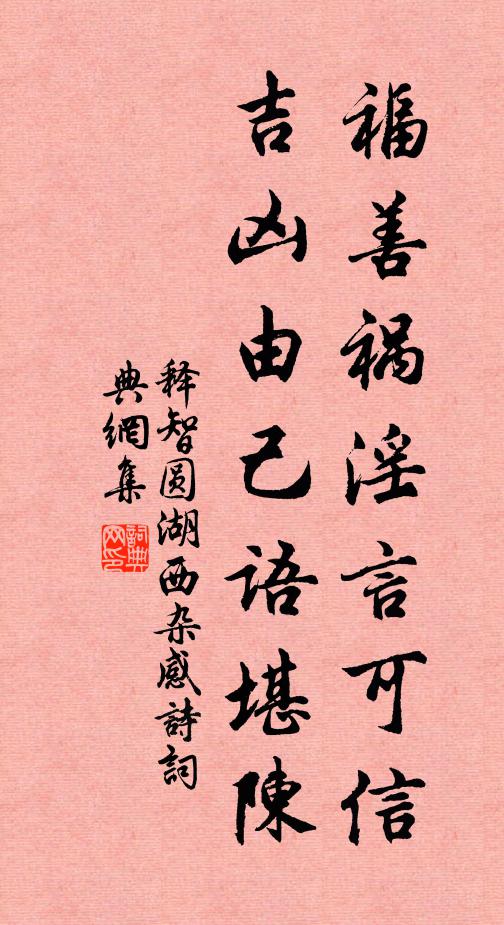 福善祸淫言可信
吉凶由己语堪陳
释智圆湖西杂感詩詞
典網集
詞典
网印